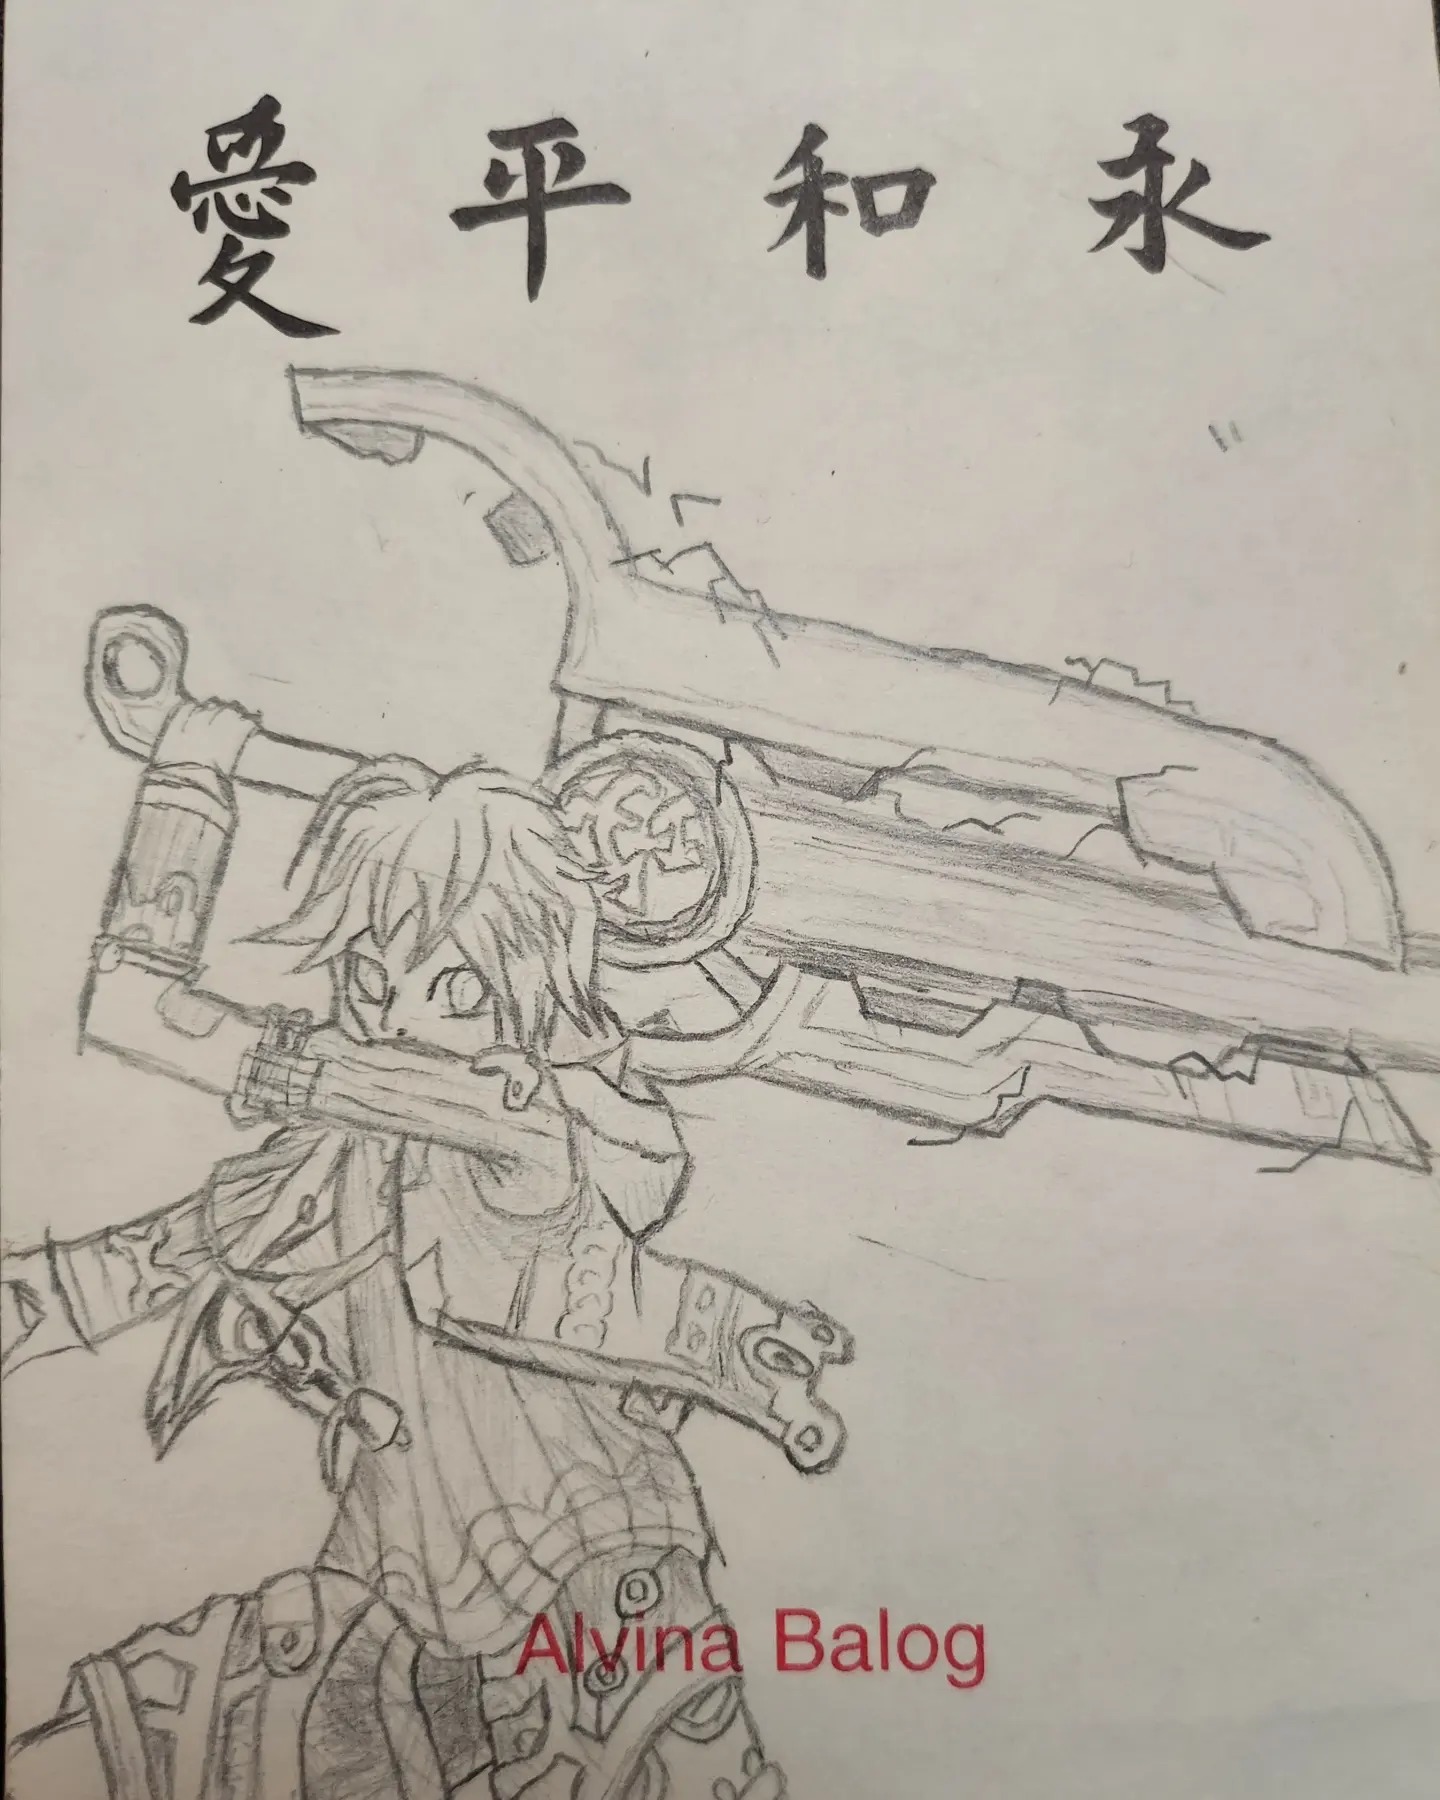 愛 平 和 永
Alvina Balog